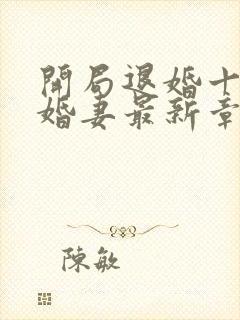 開局退婚十
婚妻最新章
陳敏